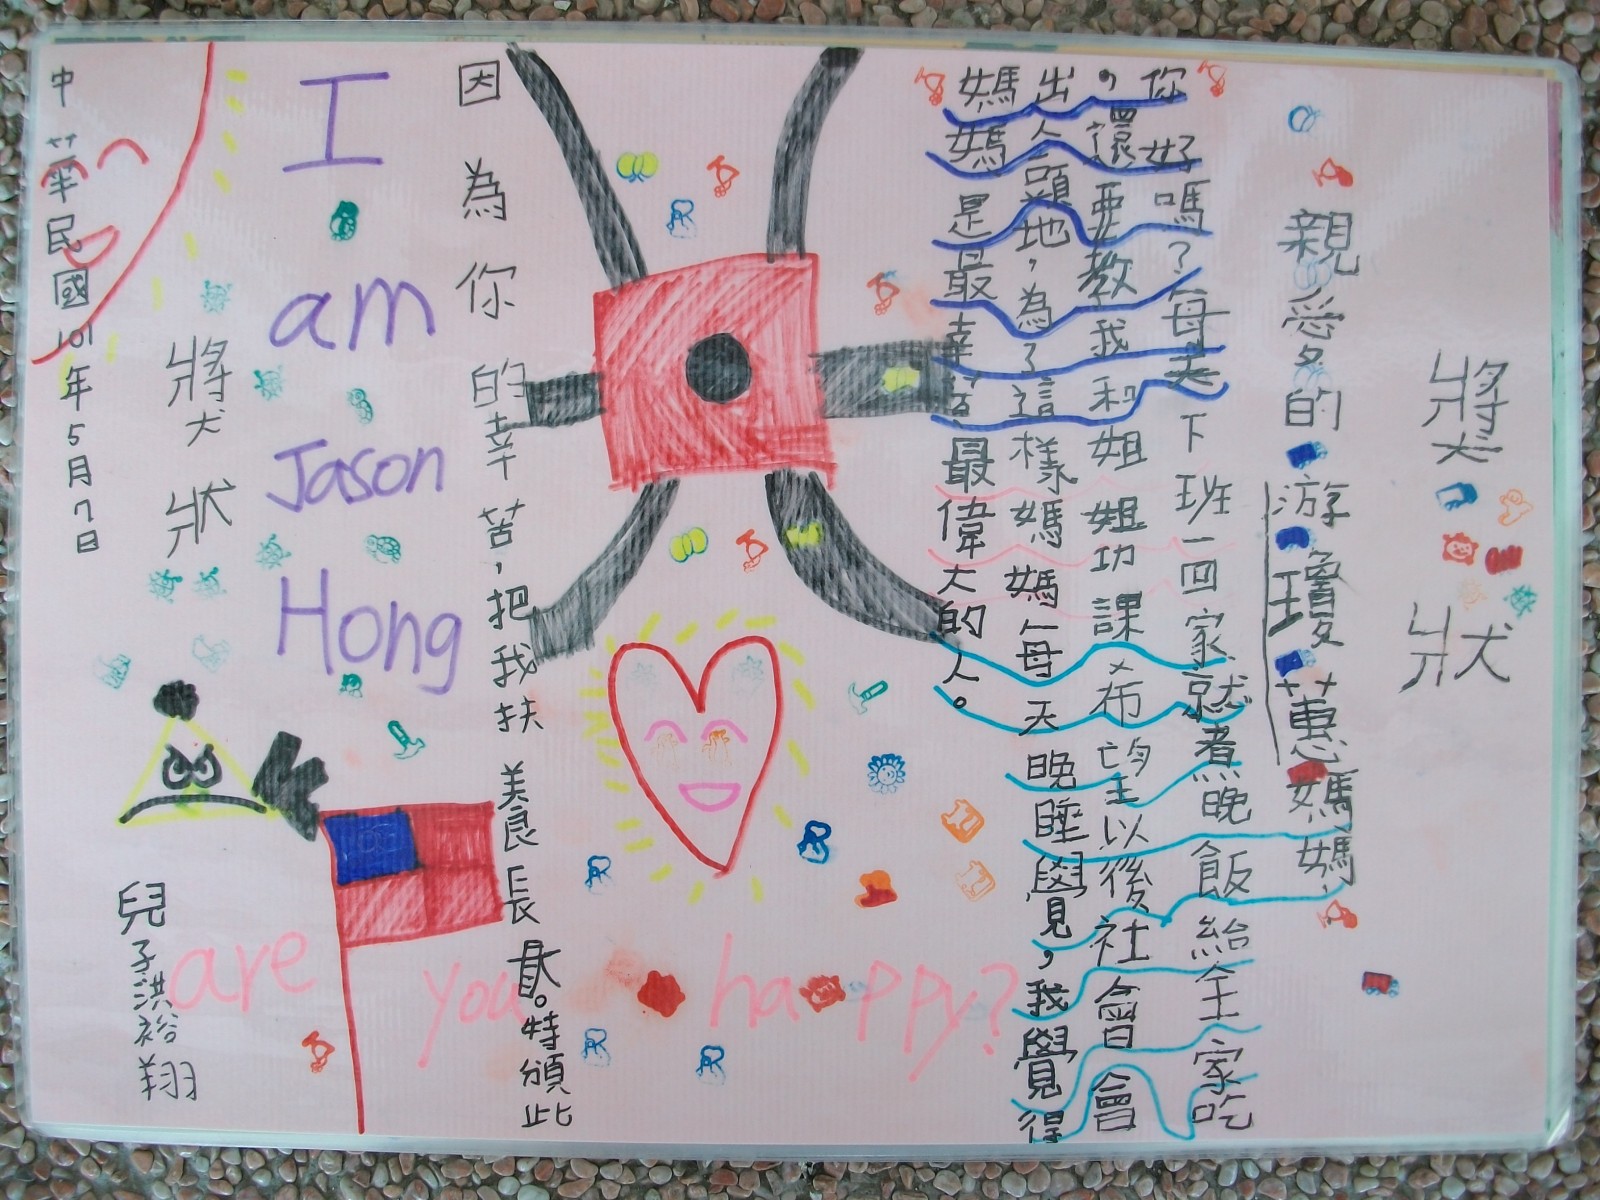 獎狀
親愛的游瓊蕙媽媽
你好嗎?每天下班一回家就煮晚飯給全家吃
,還要教我和姐姐功課希望以後社會會
出人頭地,為了這樣媽媽每天晚睡覺,我覺得
媽媽是最幸苦最偉大的人。
因為你的幸苦,把我扶養長。特頒此
獎狀
I
am
Jason
Hong
are you happy?
兒子洪裕翔
中華民國101年5月7日